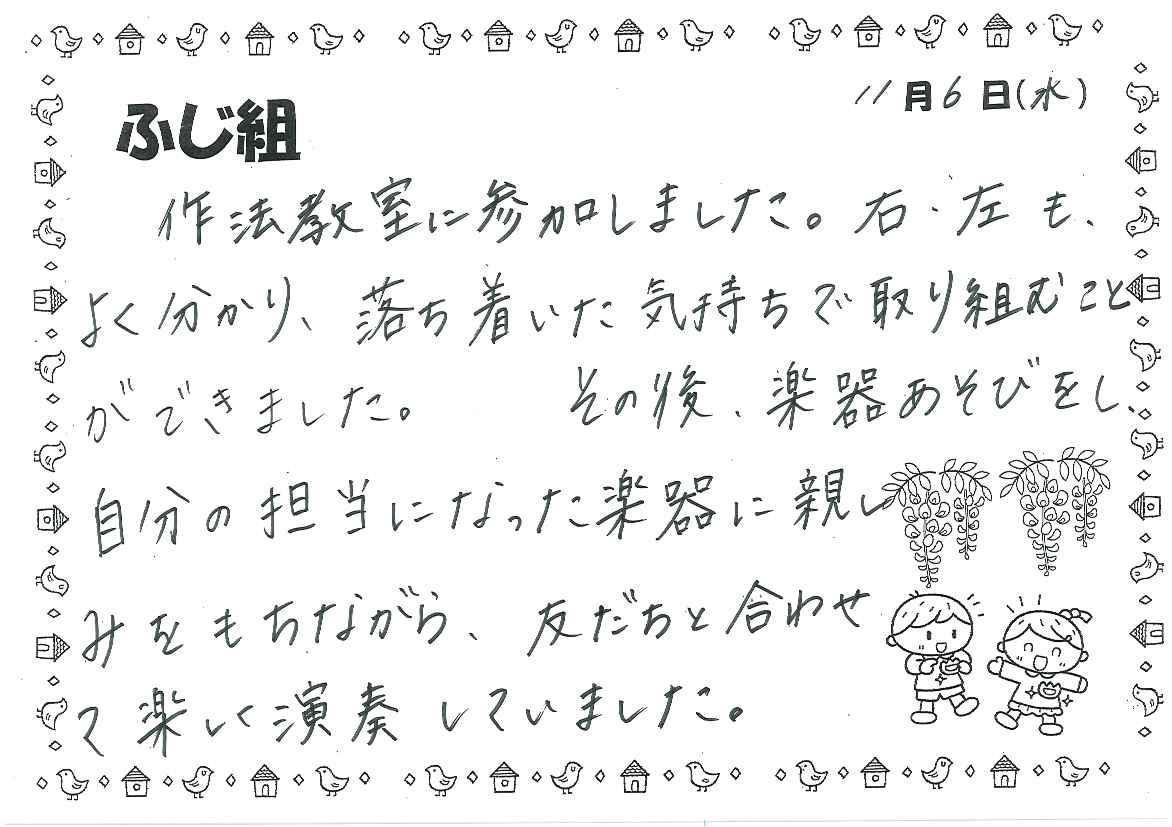 11月6日(水)
ふじ組
作法教室に参加しました。右・左も、
よく分かり、落ち着いた気持ちで取り組むこと
ができました。 その後、楽器あそびをし、
自分の担当になった楽器に親し
みをもちながら、友だちと合わせ
て楽しく演奏していました。